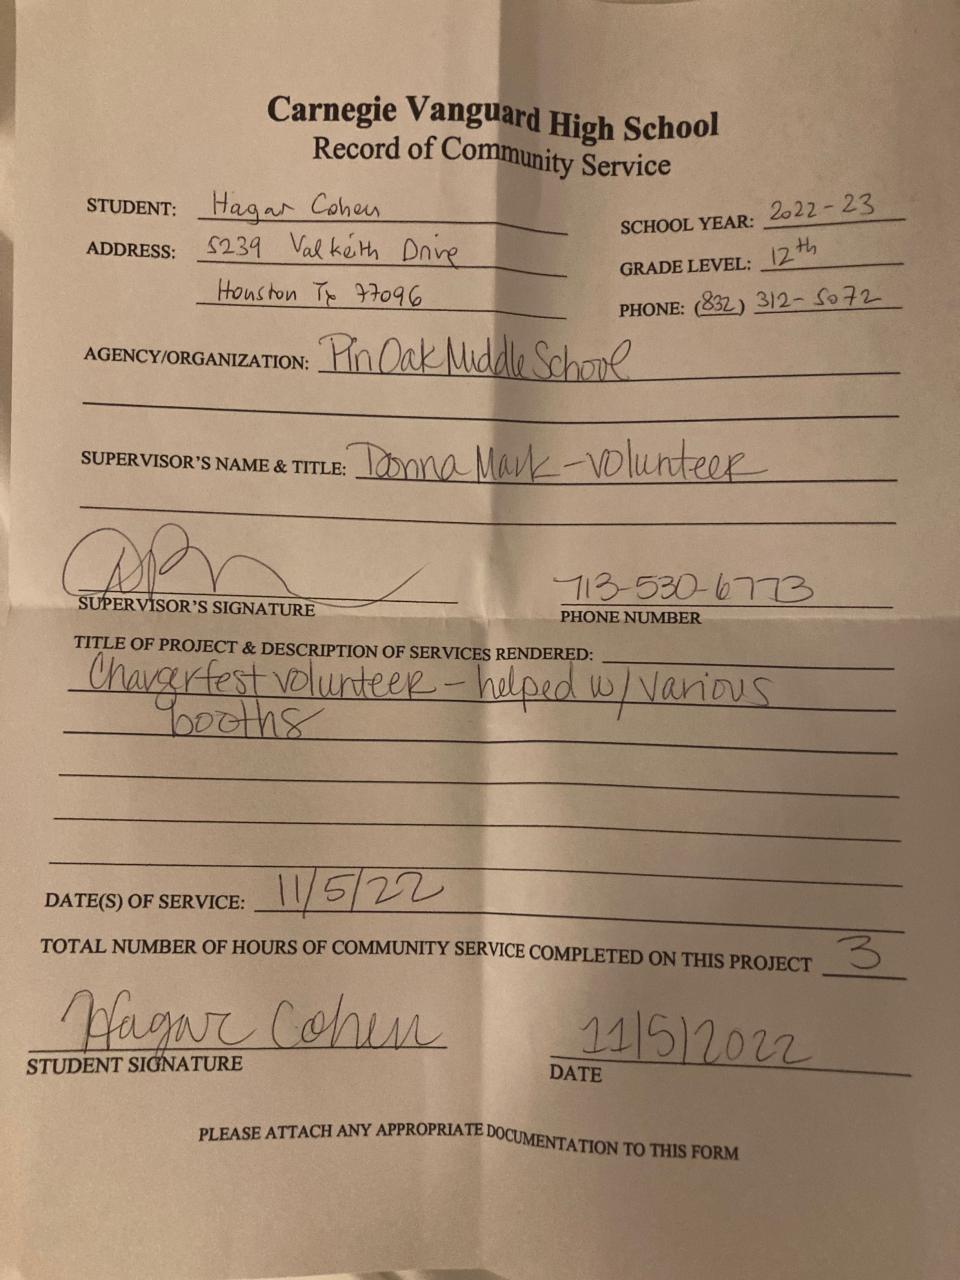 Carnegie Vanguard High School
Record of Community Service
STUDENT: Hagar Cohen
SCHOOL YEAR: 2022-23
ADDRESS: 5239 Valkeith Drive
GRADE LEVEL: 12th
Houston Tx 77096
PHONE: (832) 312-5072
AGENCY/ORGANIZATION: Pin Oak Middle School
SUPERVISOR'S NAME & TITLE: Donna Mark - volunteer
713-530-6773
SUPERVISOR'S SIGNATURE
PHONE NUMBER
TITLE OF PROJECT & DESCRIPTION OF SERVICES RENDERED:
Chargerfest volunteer - helped w/ various
booths
DATE(S) OF SERVICE: 11/5/22
TOTAL NUMBER OF HOURS OF COMMUNITY SERVICE COMPLETED ON THIS PROJECT 3
Hagar Cohen
11/5/2022
STUDENT SIGNATURE
DATE
PLEASE ATTACH ANY APPROPRIATE DOCUMENTATION TO THIS FORM